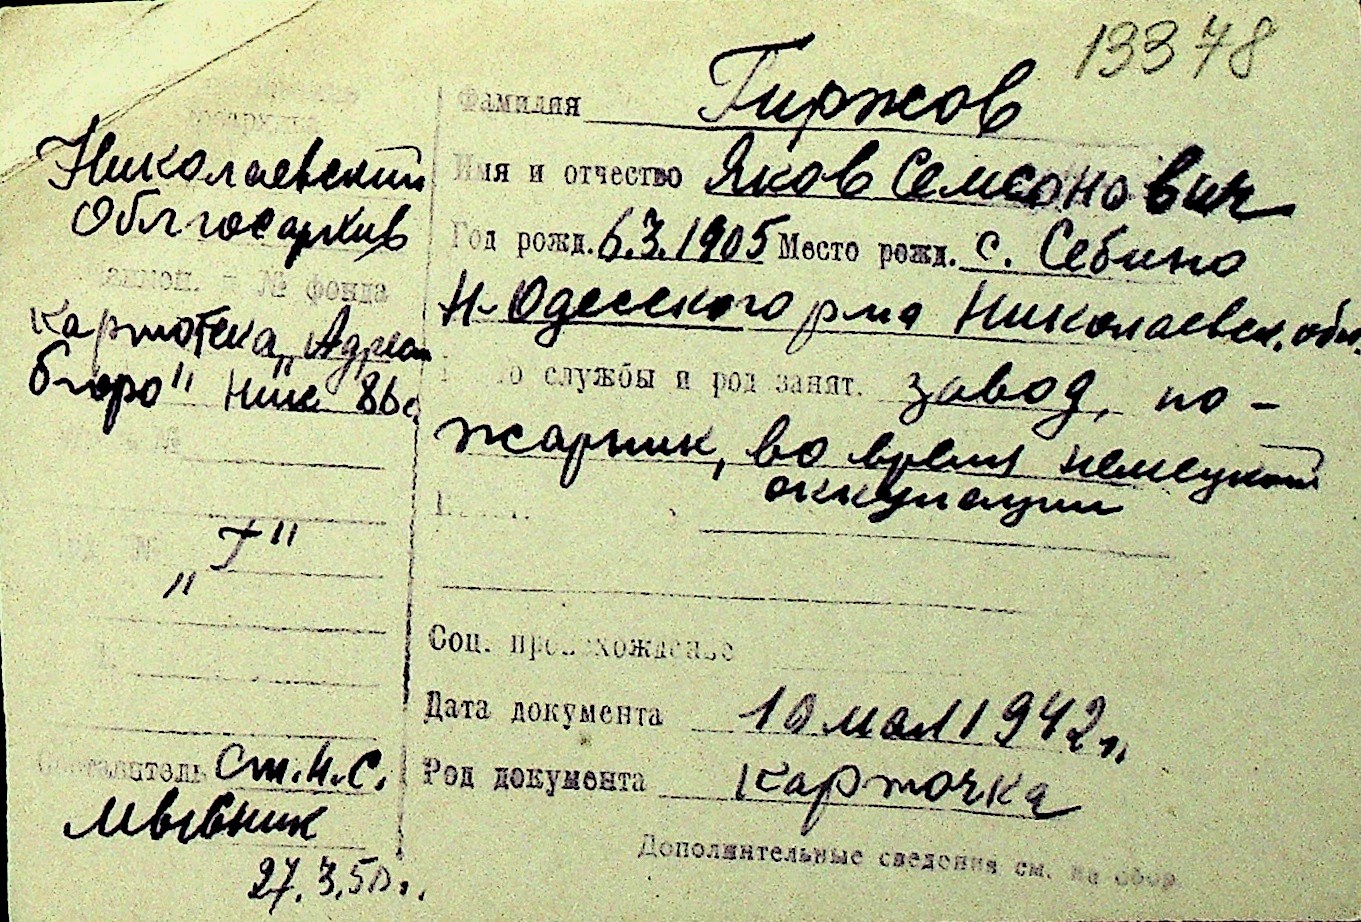 13378
Фамилия Гиржов
Имя и отчество Яков Семсонович
Год рожд. 6.3.1905 Место рожд. с. Себино
Н-Одесского р-на Николаевск. обл.
службы и род занят. завод, по-
жарник, во время немецкой
оккупации
Соц. происхождение
Дата документа 10 мая 1942 г.
Род документа Карточка
Дополнительные сведения см. на обор.
Николаевский
Облгосархив
№ фонда
Картотека „Адресн
бюро" Ник.
№
№
„Г"
Составитель ст. н. с.
27.3.50 г.